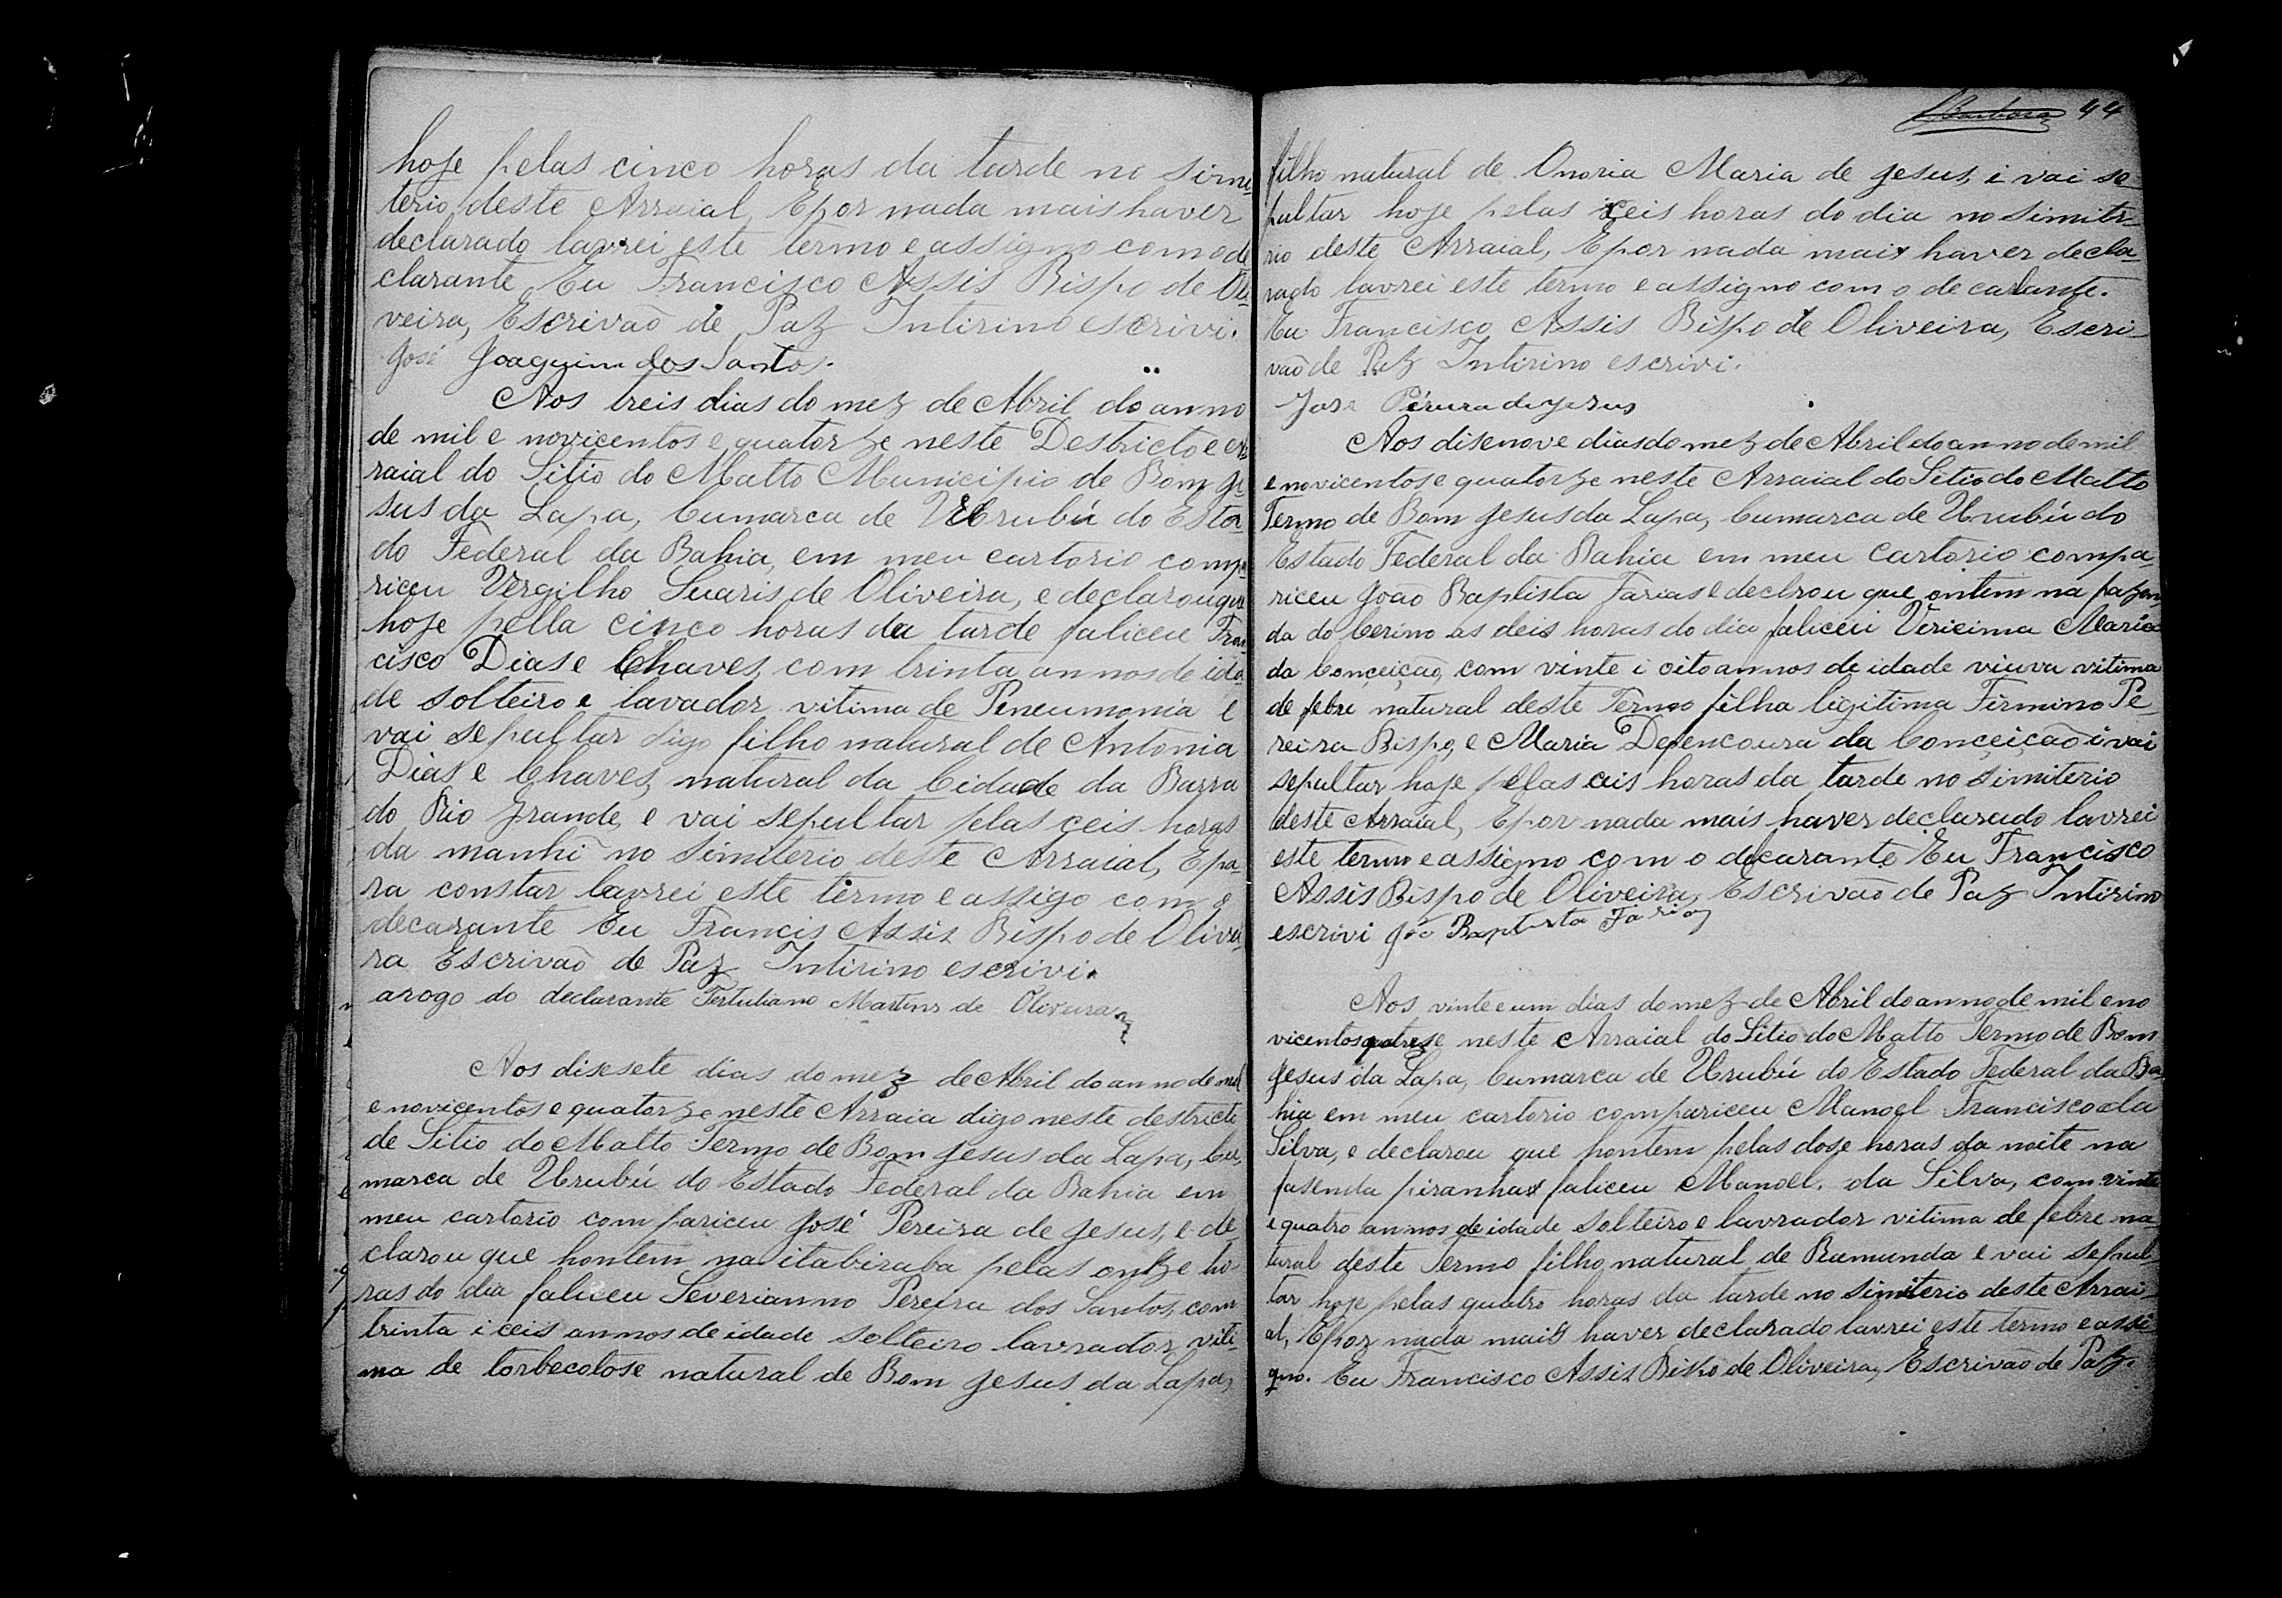 hoje pelas cinco horas da tarde no simi
terio deste Arraial, E por nada mais haver
declarado lavrei este termo e assigno com o de
clarante Eu Francisco Assis Bispo de Oli
veira, Escrivão de Paz Intirino escrivi.
José Joaquim dos Santos.
Aos treis dias do mez de Abril do anno
de mil e novicentos e quatorze neste Destricto e Ar
raial do Sitio do Matto Municipio de Bom Je
sus da Lapa, Cumarca de Urubú do Esta
do Federal da Bahia, em meu cartorio compa
riceu Vergilho Suaris de Oliveira, e declarou que
hoje pella cinco horas da tarde faliceu Fran
cisco Dias e Chaves, com trinta annos de ida
de solteiro e lavador vitima de Peneumonia e
vai sepultar digo filho natural de Antonia
Dias e Chaves, natural da Cidade da Barra
do Rio Grande, e vai sepultar pelas ceis horas
da manhi no Simiterio deste Arraial, E pa
ra constar lavrei este termo e assigo com o
decarante Eu Francis Assis Bispo de Olivei
ra Escrivão de Paz Intirino escrivi.
arogo do declarante Tertuliano Martins de Oliveira
Aos disesete dias do mez de Abril do anno de mil
e novicentos e quatorze neste Arraia digo neste destricto
de Sitio do Matto Termo de Bom Jesus da Lapa, Cu
marca de Urubú do Estado Federal da Bahia em
meu cartorio compariceu José Pereira de Jesus, e de
clarou que hontem na itabiraba pelas onze ho
ras do dia faliceu Severianno Pereira dos Santos, com
trinta i ceis annos de idade solteiro lavrador, viti
ma de torbecolose natural de Bom Jesus da Lapa,
Barbosa 44
filho natural de Onoria Maria de Jesus, i vai se
pultar hoje pelas ceis horas do dia no simite
rio deste Arraial, E por nada mais haver decla
rado lavrei este termo e assigno com o decarlante.
Eu Francisco Assis Bispo de Oliveira, Escri
vão de Paz Intirino escrivi.
Jose Pereira de Jesus
Aos disenove dias do mez de Abril do anno de mil
e novicentos e quatorze neste Arraial do Sitio do Matto
Termo de Bom Jesus da Lapa, Cumarca de Urubú do
Estado Federal da Bahia em meu Cartorio compa
riceu João Baptista Farias e declrou que ontem na fazen
da do Cerino as deis horas do dia faliceu Vericima Maria
da Conceição, com vinte i oito annos de idade viuva vitima
de febre natural deste Termo filha ligitima Firmino Pe
reira Bispo, e Maria da Conceição i vai
sepultar hoje pelas ceis horas da tarde no simiterio
deste Arraial, E por nada mais haver declarado lavrei
este termo e assigno com o decarante Eu Francisco
Assis Bispo de Oliveira, Escrivão de Paz Intirino
escrivi João Baptista Farias
Aos vinte e um dias do mez de Abril do anno de mil e no
vicentos quatorze neste Arraial do Sitio do Matto Termo de Bom
Jesus da Lapa, Cumarca de Urubú do Estado Federal da Ba
hia em meu cartorio compariceu Manoel Francisco da
Silva, e declarou que hontem pelas dose horas da noite na
fasenda piranhas faliceu Manoel da Silva, com vinte
e quatro annos de idade solteiro e lavrador vitima de febre na
tural deste Termo filho natural de Ramunda e vai sepul
tar hoje pelas quatro horas da tarde no Simiterio deste Arrai
al, E por nada mais haver declarado lavrei este termo e assi
gno. Eu Francisco Assis Bispo de Oliveira, Escrivão de Paz.